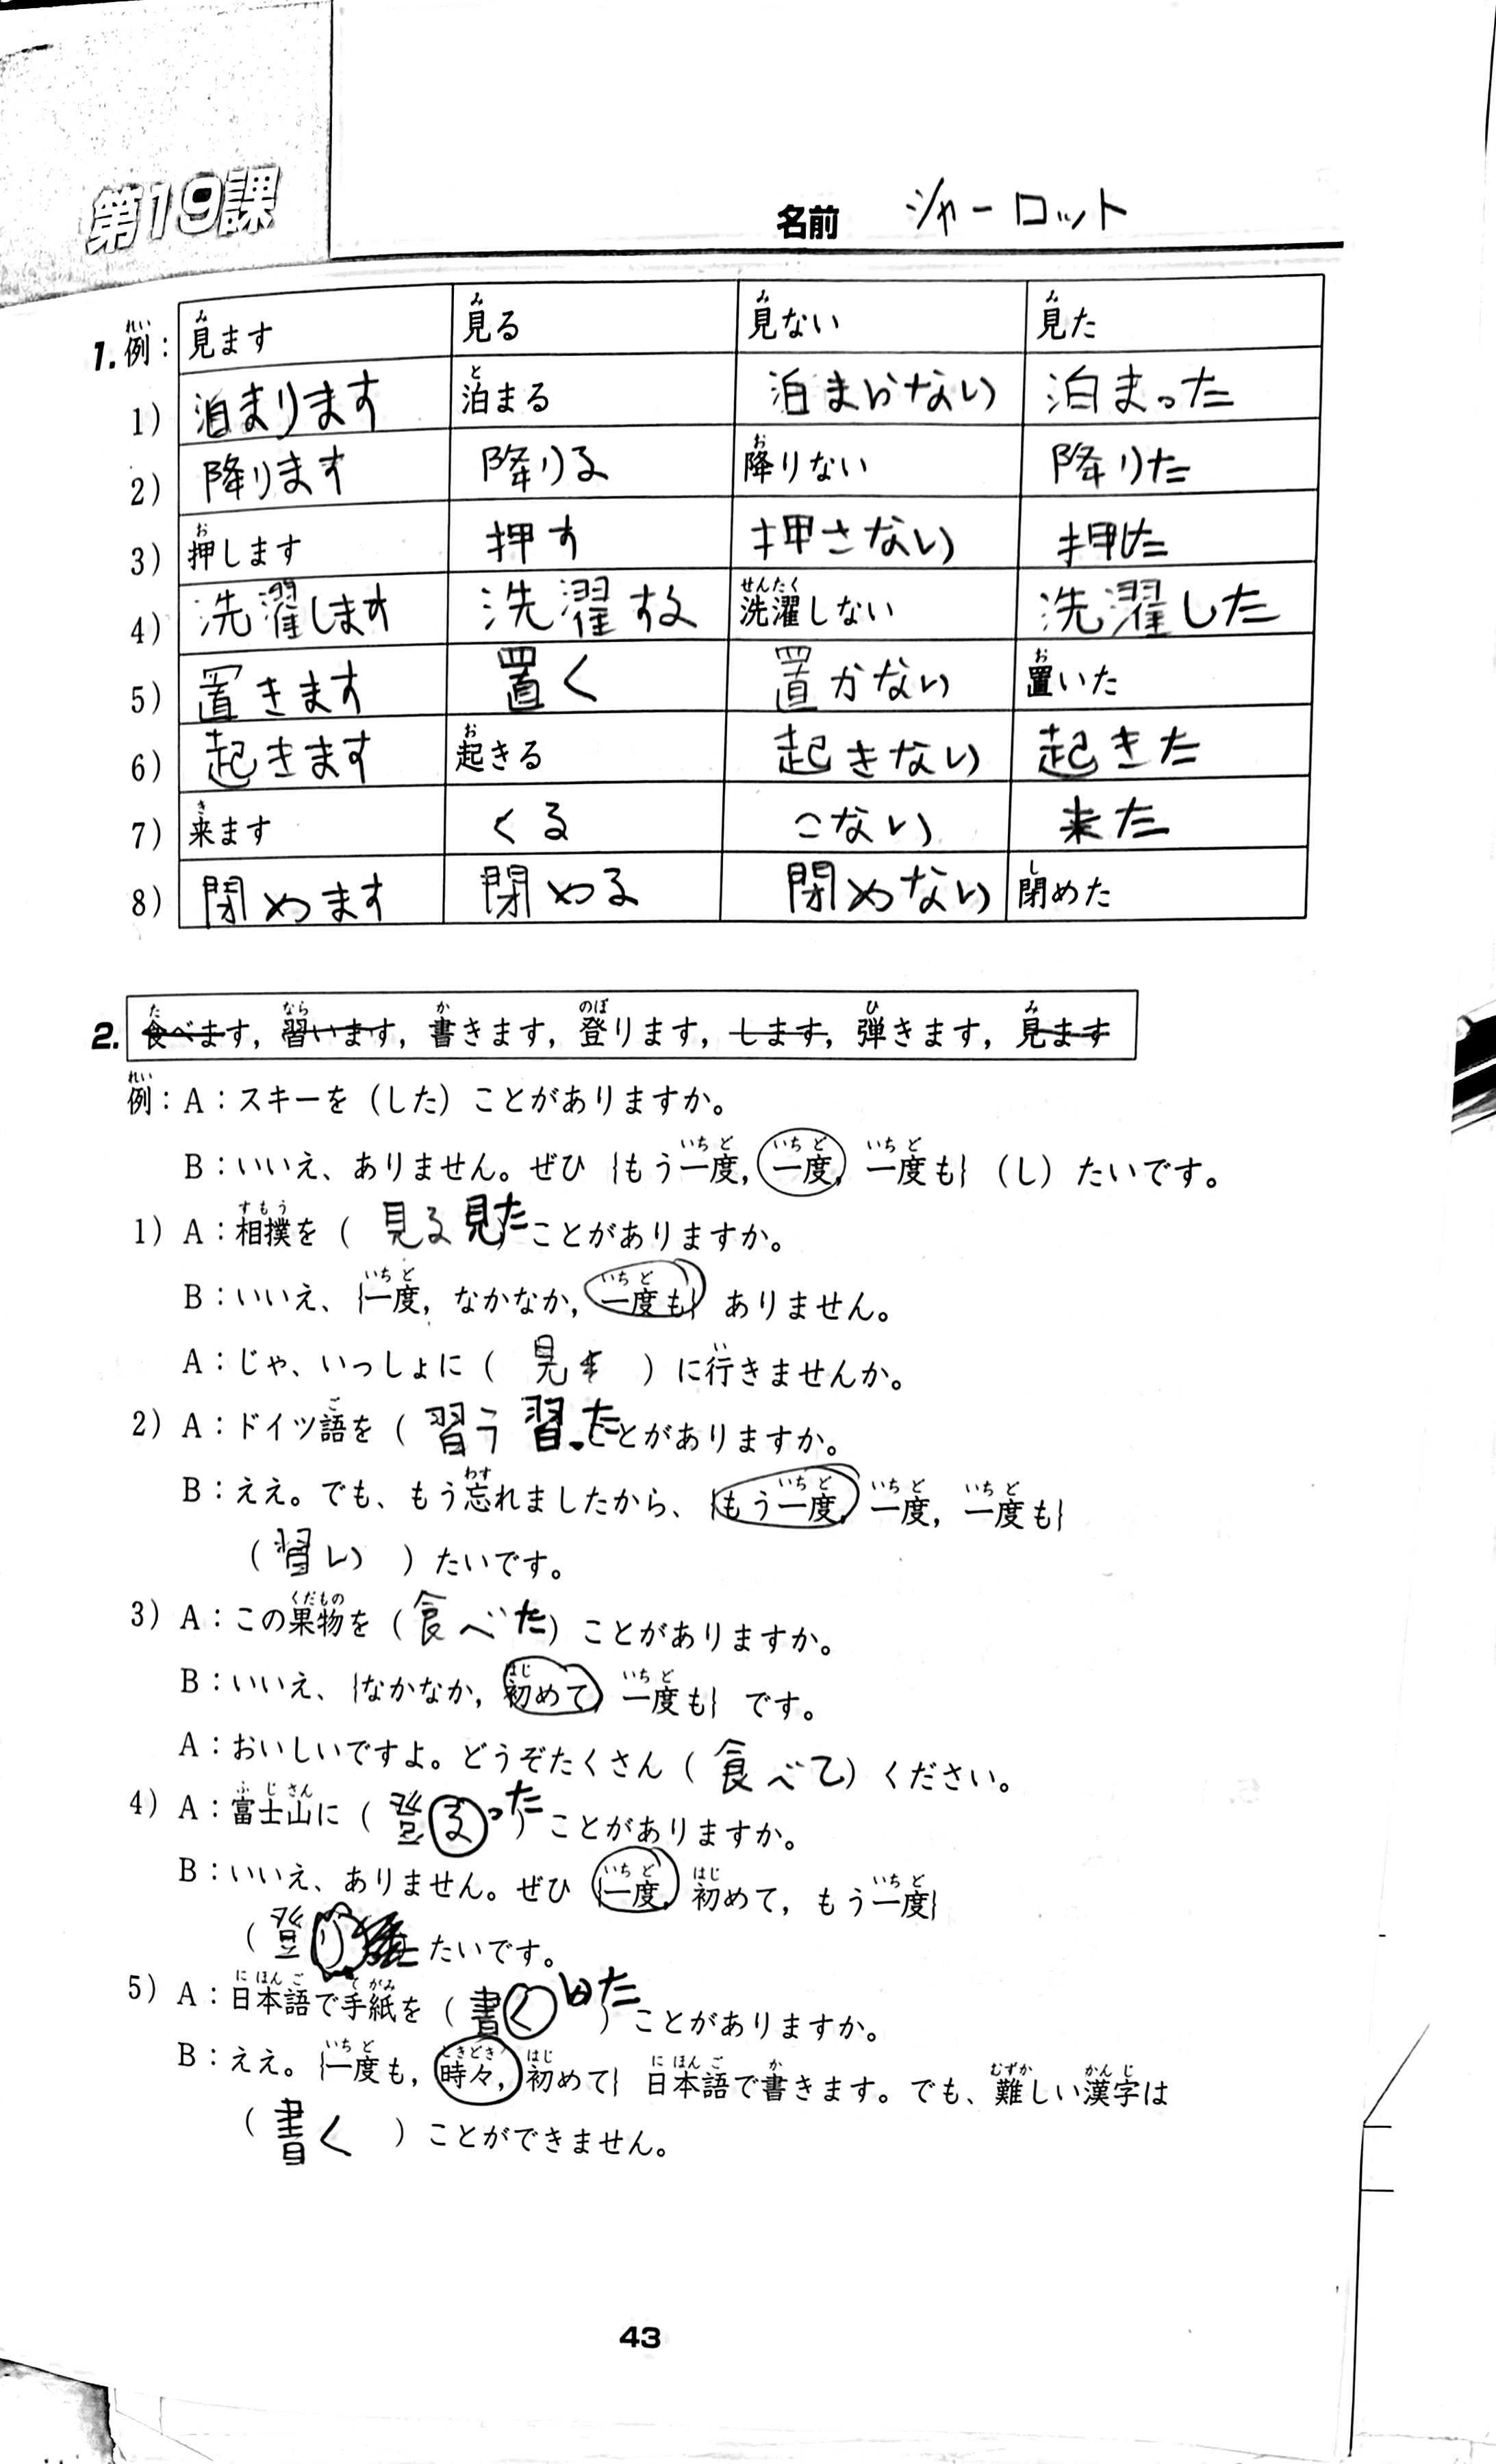 第19課
名前 シャーロット
1. 例： 見ます 見る 見ない 見た
1) 泊まります 泊まる 泊まらない 泊まった
2) 降ります 降りる 降りない 降りた
3) 押します 押す 押さない 押した
4) 洗濯します 洗濯する 洗濯しない 洗濯した
5) 置きます 置く 置かない 置いた
6) 起きます 起きる 起きない 起きた
7) 来ます くる こない 来た
8) 閉めます 閉める 閉めない 閉めた
2. 食べます，習います，書きます，登ります，します，弾きます，見ます
例：A：スキーを（した）ことがありますか。
B：いいえ、ありません。ぜひ {もう一度，一度，一度も}（し）たいです。
1) A：相撲を（ 見る 見た ）ことがありますか。
B：いいえ、{一度，なかなか，一度も} ありません。
A：じゃ、いっしょに（ 見 ）に行きませんか。
2) A：ドイツ語を（ 習う 習った ことがありますか。
B：ええ。でも、もう忘れましたから、{もう一度，一度，一度も}
（ 習い ）たいです。
3) A：この果物を（ 食べた ）ことがありますか。
B：いいえ、{なかなか，初めて，一度も} です。
A：おいしいですよ。どうぞたくさん（ 食べて ）ください。
4) A：富士山に（ 登る った ）ことがありますか。
B：いいえ、ありません。ぜひ {一度，初めて，もう一度}
（ 登り たいです。
5) A：日本語で手紙を（ 書く いた ）ことがありますか。
B：ええ。{一度も，時々，初めて} 日本語で書きます。でも、難しい漢字は
（ 書く ）ことができません。
43